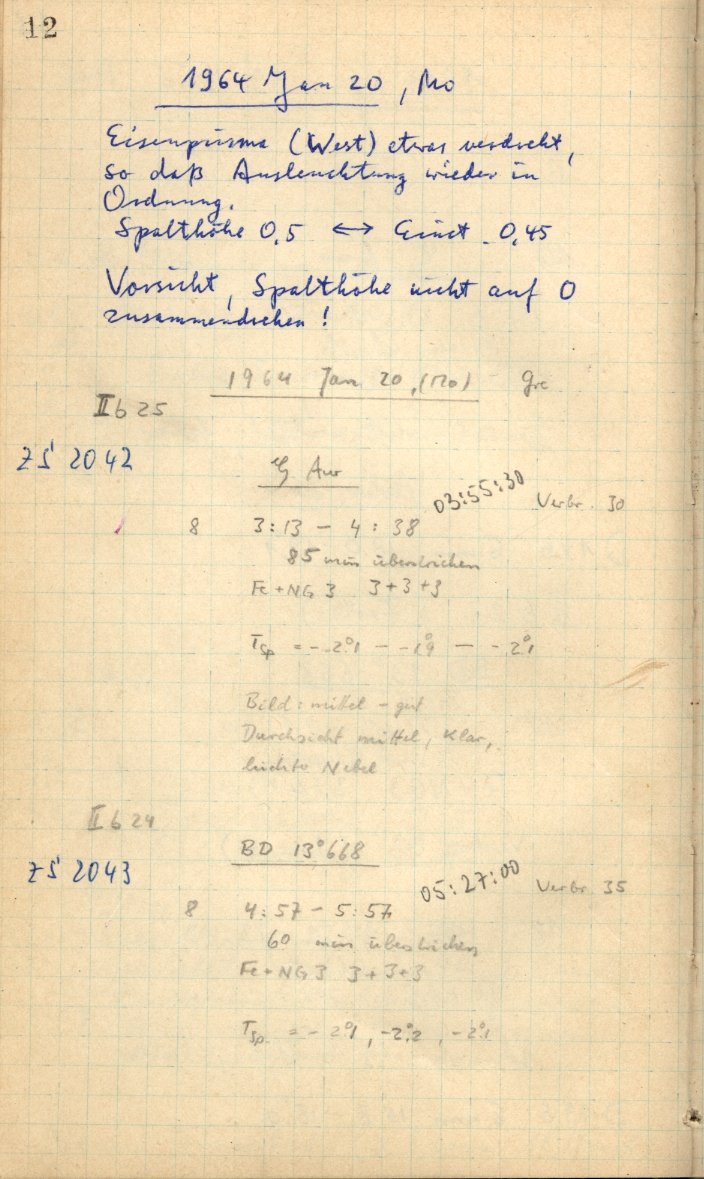 12
1964 Jan 20, Mo
Eisenprisma (West) etwas verdreht,
so daß Ausleuchtung wieder in
Ordnung.
Spalthöhe 0,5 ↔ Einst. 0,45
Vorsicht, Spalthöhe nicht auf 0
zusammendrehen!
1964 Jan 20, (Mo) Gre
II b 25
ZS 2042
Aur
03:55:30 Verbr. 30
8 3:13 – 4:38
85 min überstrichen
Fe + NG 3 3+3+3
T Sp = -2°,1 – -1°,9 – -2°,1
Bild: mittel – gut
Durchsicht mittel, klar,
leichte Nebel
II b 24
BD 13°668
ZS 2043
05:27:00 Verbr. 35
8 4:57 – 5:57
60 min überstrichen
Fe + NG 3 3+3+3
T Sp. = -2°,1, -2°,2, -2°,1